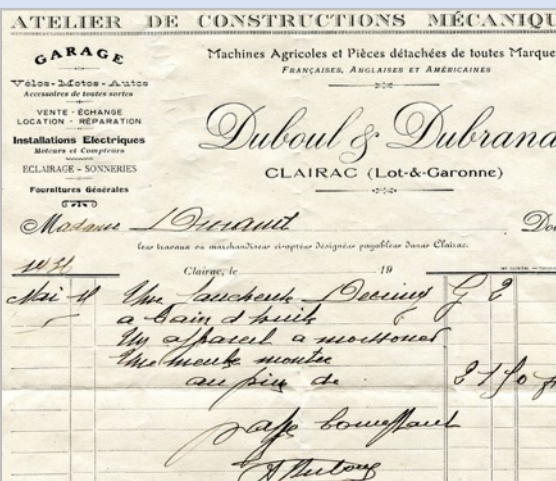 ATELIER DE CONSTRUCTIONS MÉCANIQU
GARAGE
Vélos-Motos-Autos
Accessoires de toutes sortes
VENTE - ÉCHANGE
LOCATION - RÉPARATION
Installations Electriques
Moteurs et Compteurs
ECLAIRAGE - SONNERIES
Fournitures Générales
Machines Agricoles et Pièces détachées de toutes Marque
FRANÇAISES, ANGLAISES ET AMÉRICAINES
Duboul & Dubrana
CLAIRAC (Lot-&-Garonne)
Madame Do
les travaux ou marchandises ci-après désignés payables dans Clairac.
Clairac, le 19
Mai Une faucheuse Deering
a bain d huile
Un appareil a moissoner
Une meule montée
au prix de 2150 f